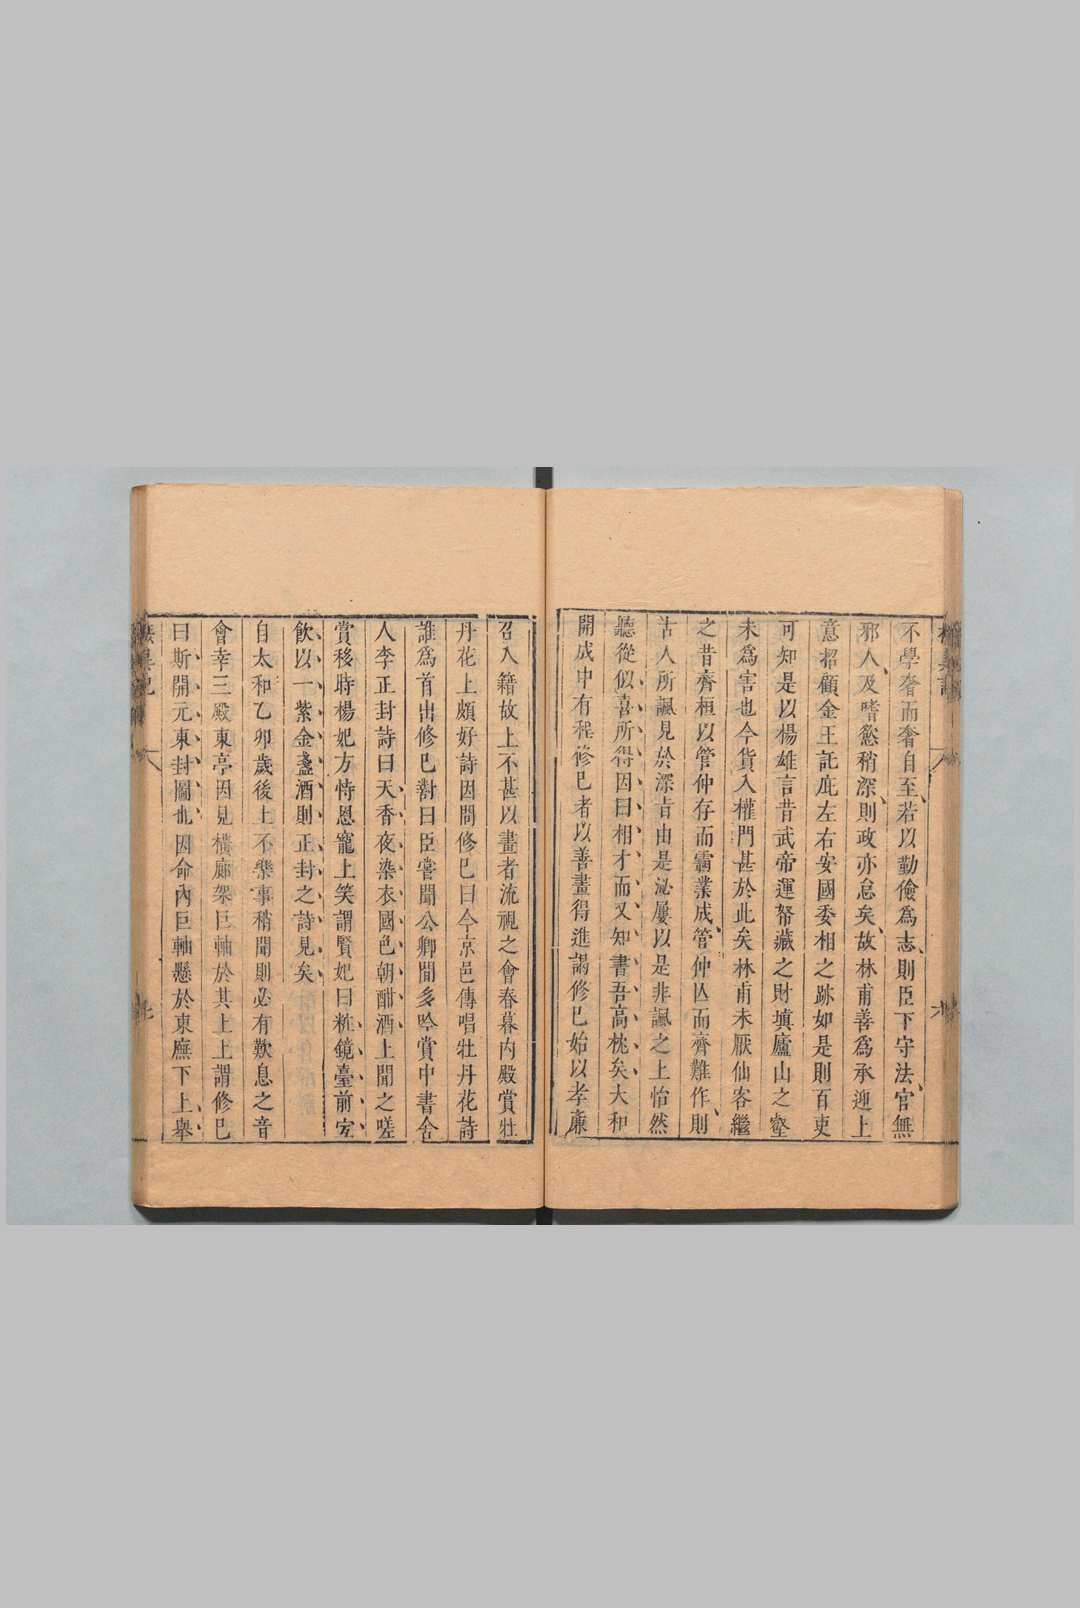 不學奢而奢自至若以勤儉爲志則臣下守法官無
邪人及嗜慾稍深則政亦怠矣故林甫善爲承迎上
意招顧金王託庇左右安國委相之跡如是則百吏
可知是以楊雄言昔武帝運帑藏之財塡廬山之壑
未爲害也今貨入權門甚於此矣林甫未厭仙客繼
之昔齊桓以管仲存而霸業成管仲亾而齊難作則
古人所諷見於深旨由是泌屢以是非諷之上怡然
聽從似喜所得因曰相才而又知書吾高枕矣大和
開成中有程修已者以善畫得進謁修已始以孝廉
召入籍故上不甚以畫者流視之會春暮內殿賞牡
丹花上頗好詩因問修已曰今京邑傳唱牡丹花詩
誰爲首出修已對曰臣嘗聞公卿間多吟賞中書舍
人李正封詩曰天香夜染衣國色朝酣酒上聞之嗟
賞移時楊妃方恃恩寵上笑謂賢妃曰粧鏡臺前宐
飲以一紫金盞酒則正封之詩見矣
自太和乙卯歲後上不樂事稍聞則必有歎息之音
會幸三殿東亭因見橫廊架巨軸於其上上謂修已
曰斯開元東封圖也因命內巨軸懸於東廡下上舉